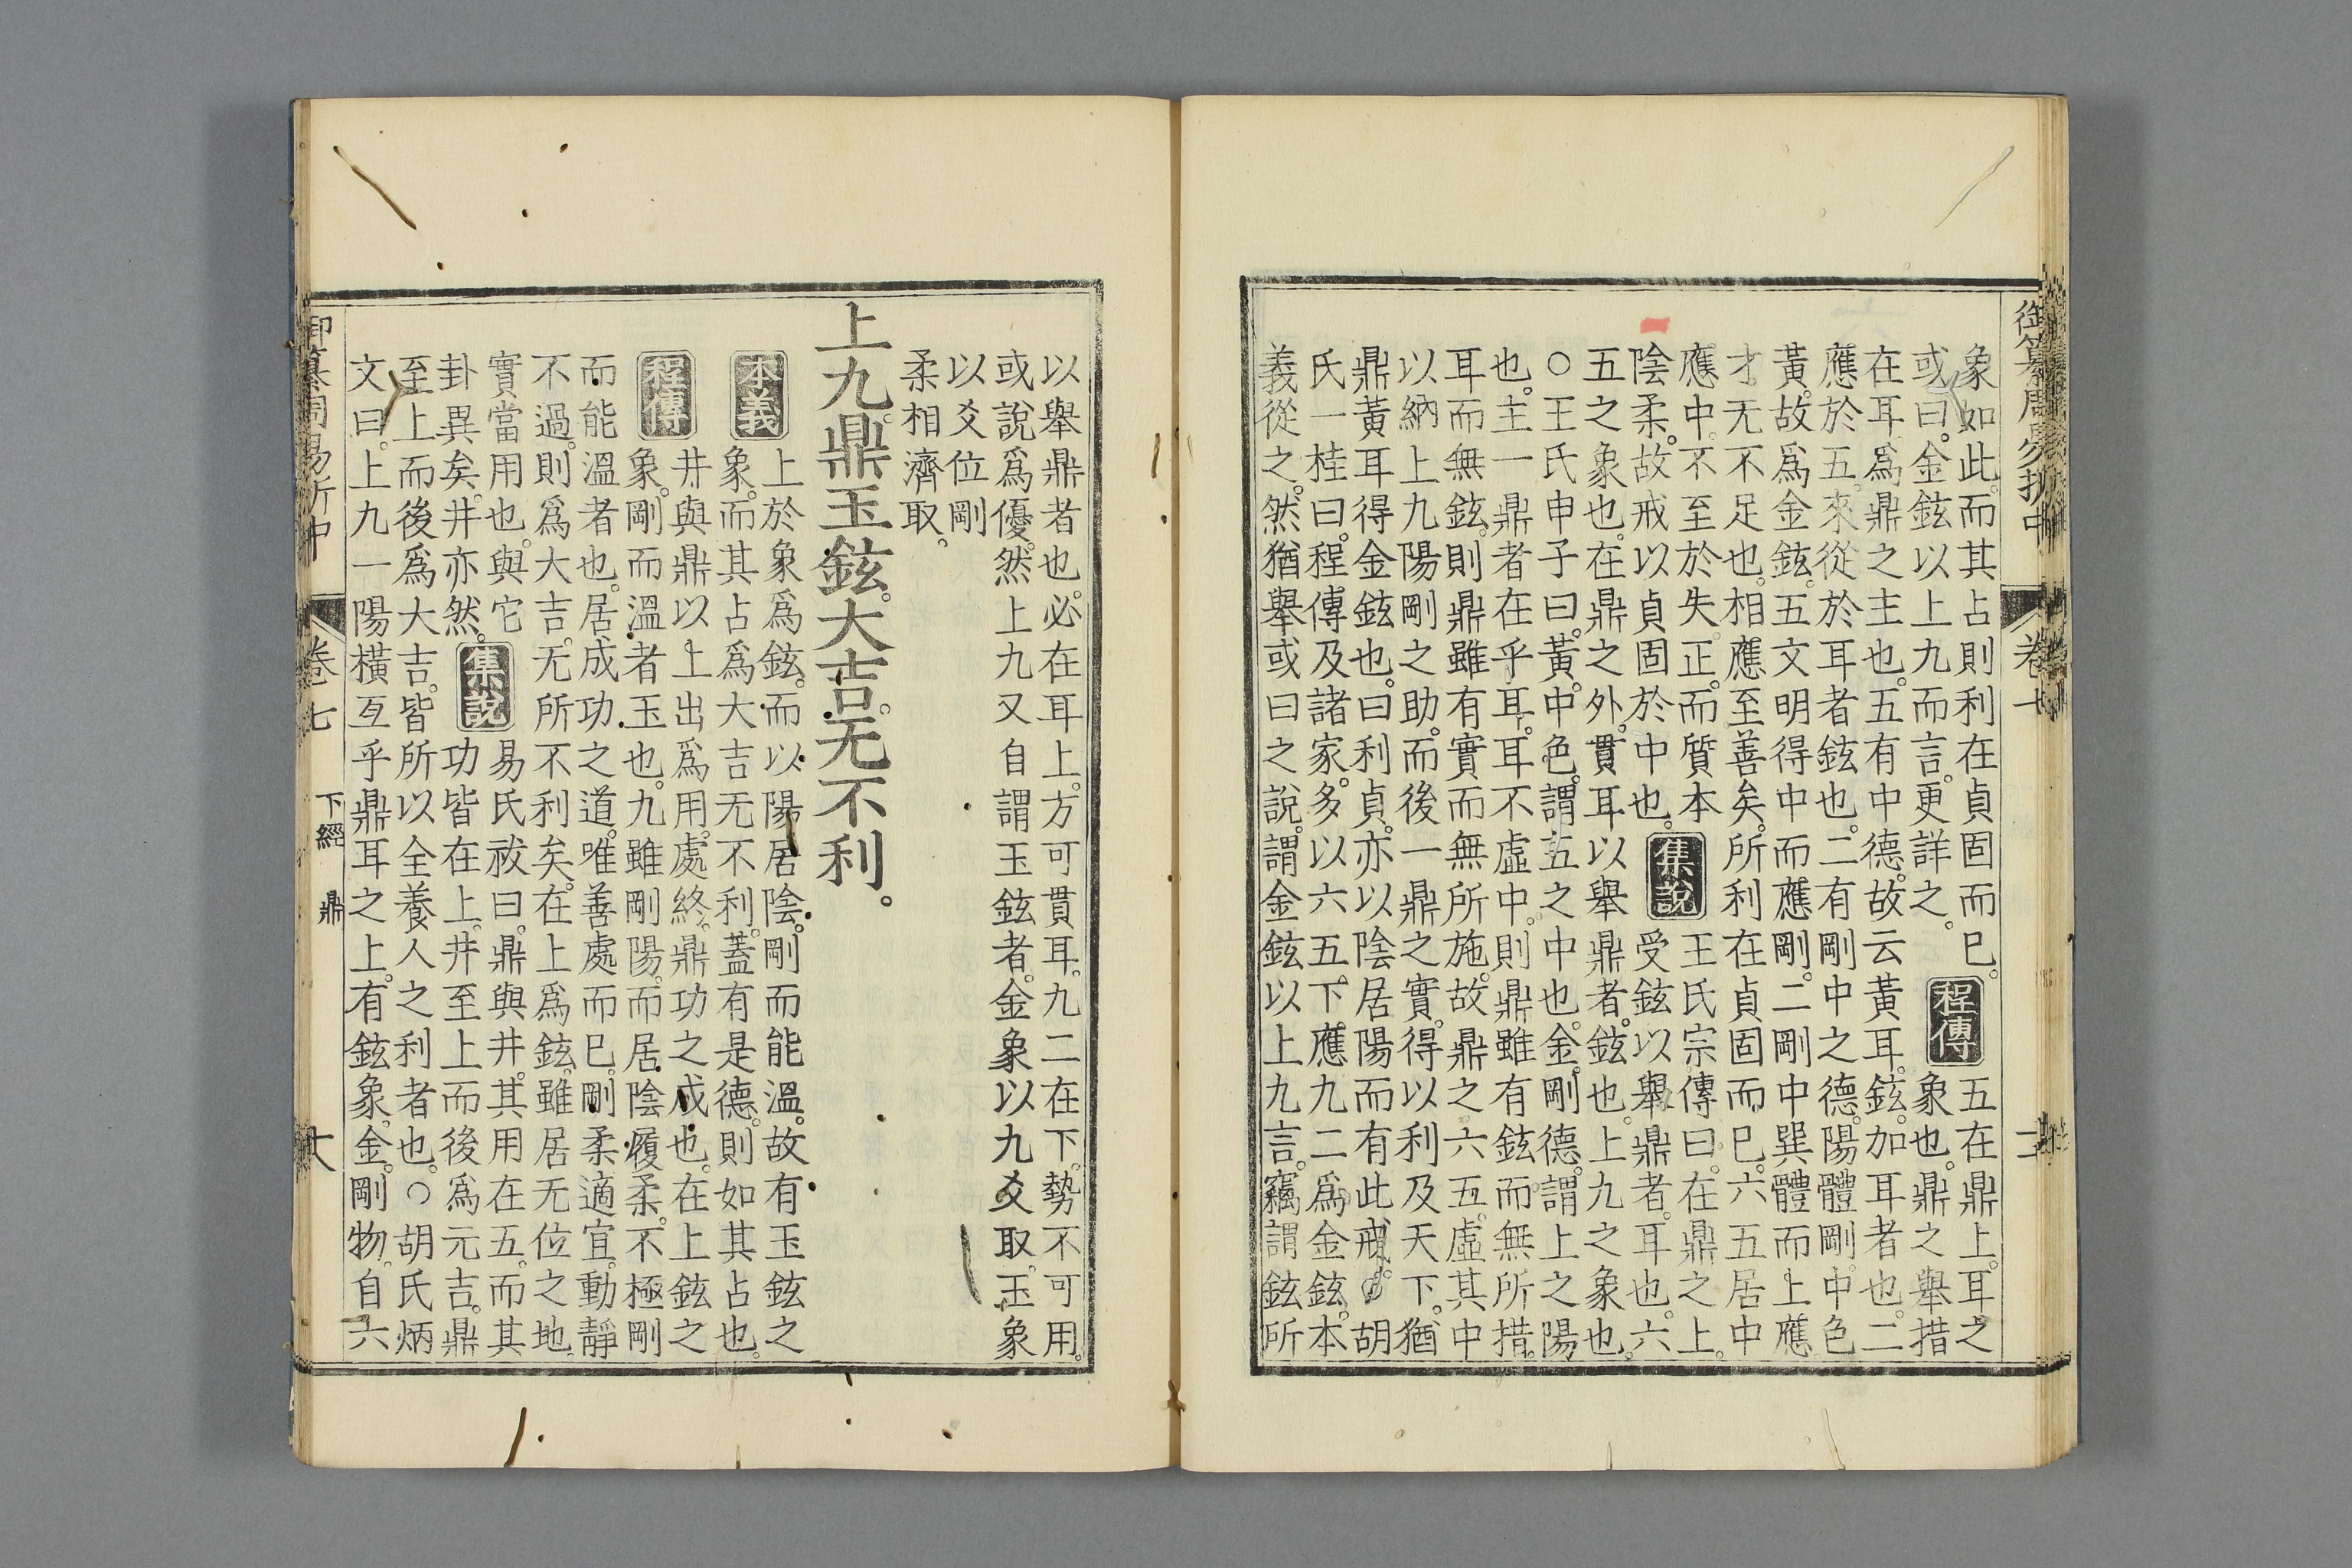 御纂周易折中
卷七
象如此。而其占則利在貞固而已。
或曰。金鉉以上九而言。更詳之。
程傳
五在鼎上。耳之
象也。鼎之舉措
在耳。爲鼎之主也。五有中德。故云黃耳。鉉。加耳者也。二
應於五。來從於耳者鉉也。二有剛中之德。陽體剛。中色
黃。故爲金鉉。五文明得中而應剛。二剛中巽體而上應
才无不足也。相應至善矣。所利在貞固而已。六五居中
應中。不至於失正。而質本
陰柔。故戒以貞固於中也。
集說
王氏宗傳曰。在鼎之上。
受鉉以舉鼎者。耳也。六
五之象也。在鼎之外。貫耳以舉鼎者。鉉也。上九之象也。
○王氏申子曰。黃。中色。謂五之中也。金。剛德。謂上之陽
也。主一鼎者在乎耳。耳不虛中。則鼎雖有鉉而無所措。
耳而無鉉。則鼎雖有實而無所施。故鼎之六五。虛其中
以納上九陽剛之助。而後一鼎之實。得以利及天下。猶
鼎黃耳得金鉉也。曰利貞。亦以陰居陽而有此戒。○胡
氏一桂曰。程傳及諸家。多以六五下應九二爲金鉉。本
義從之。然猶舉或曰之說。謂金鉉以上九言。竊謂鉉所
以舉鼎者也。必在耳上。方可貫耳。九二在下。勢不可用。
或說爲優。然上九又自謂玉鉉者。金象以九爻取。玉象
以爻位剛
柔相濟取。
上九。鼎玉鉉。大吉。无不利。
本義
上於象爲鉉。而以陽居陰。剛而能溫。故有玉鉉之
象。而其占爲大吉无不利。蓋有是德。則如其占也。
程傳
井與鼎以上出爲用。處終。鼎功之成也。在上鉉之
象。剛而溫者玉也。九雖剛陽。而居陰履柔。不極剛
而能溫者也。居成功之道。唯善處而已。剛柔適宜。動靜
不過。則爲大吉。无所不利矣。在上爲鉉。雖居无位之地。
實當用也。與它
卦異矣。井亦然。
集說
易氏祓曰。鼎與井。其用在五。而其
功皆在上。井至上而後爲元吉。鼎
至上而後爲大吉。皆所以全養人之利者也。○胡氏炳
文曰。上九一陽橫亙乎鼎耳之上。有鉉象。金。剛物。自六
御纂周易折中
卷七
下經
鼎